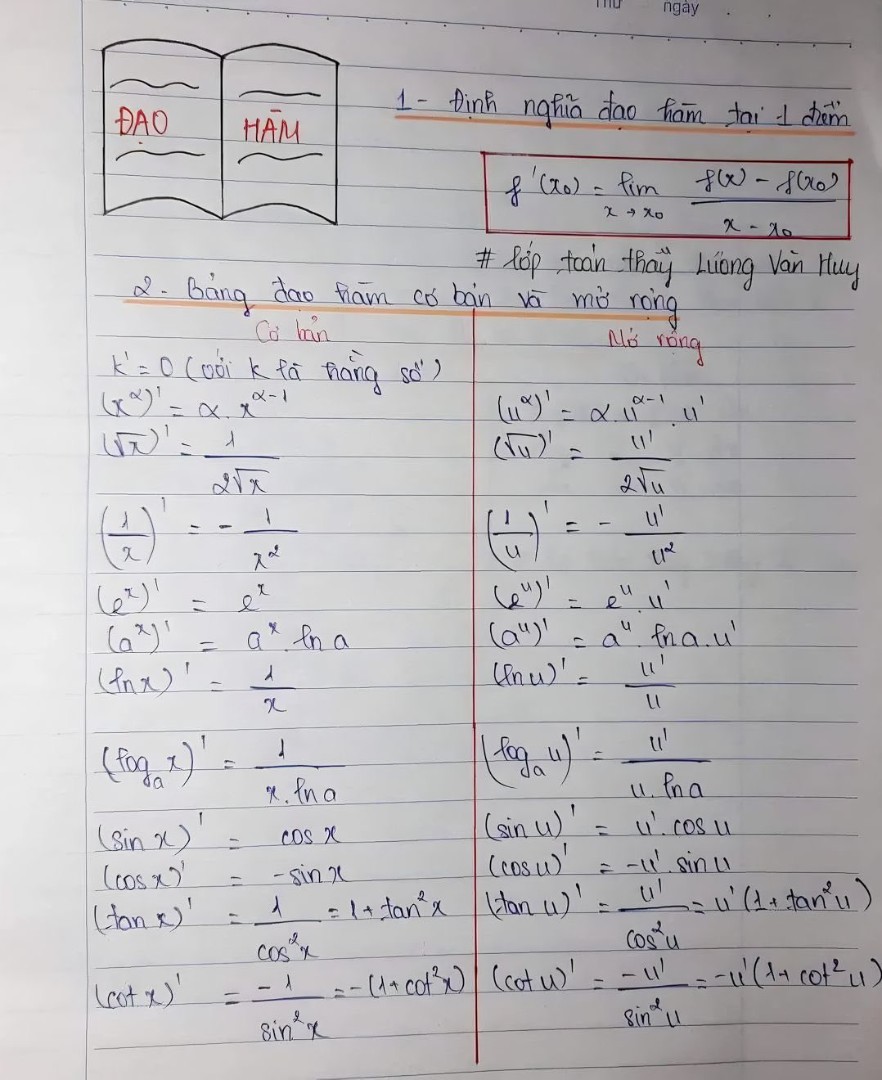 Thứ ngày
ĐẠO HÀM
1 - Định nghĩa đạo hàm tại 1 điểm
f'(x₀) = lim_{x → x₀} (f(x) - f(x₀)) / (x - x₀)
# lớp toán thầy Lương Văn Huy
2 - Bảng đạo hàm cơ bản và mở rộng
Cơ bản Mở rộng
k' = 0 (với k là hằng số)
(x^α)' = α.x^(α-1) (u^α)' = α.u^(α-1).u'
(√x)' = 1 / (2√x) (√u)' = u' / (2√u)
(1/x)' = - 1 / x² (1/u)' = - u' / u²
(e^x)' = e^x (e^u)' = e^u.u'
(a^x)' = a^x.ln a (a^u)' = a^u.ln a.u'
(ln x)' = 1 / x (ln u)' = u' / u
(logₐ x)' = 1 / (x.ln a) (logₐ u)' = u' / (u.ln a)
(sin x)' = cos x (sin u)' = u'.cos u
(cos x)' = -sin x (cos u)' = -u'.sin u
(tan x)' = 1 / cos²x = 1 + tan²x (tan u)' = u' / cos²u = u'(1 + tan²u)
(cot x)' = -1 / sin²x = -(1 + cot²x) (cot u)' = -u' / sin²u = -u'(1 + cot²u)